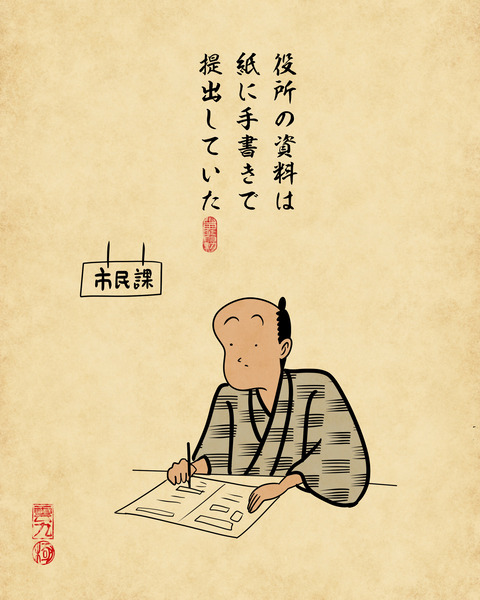 役所の資料は
紙に手書きで
提出していた
市民課